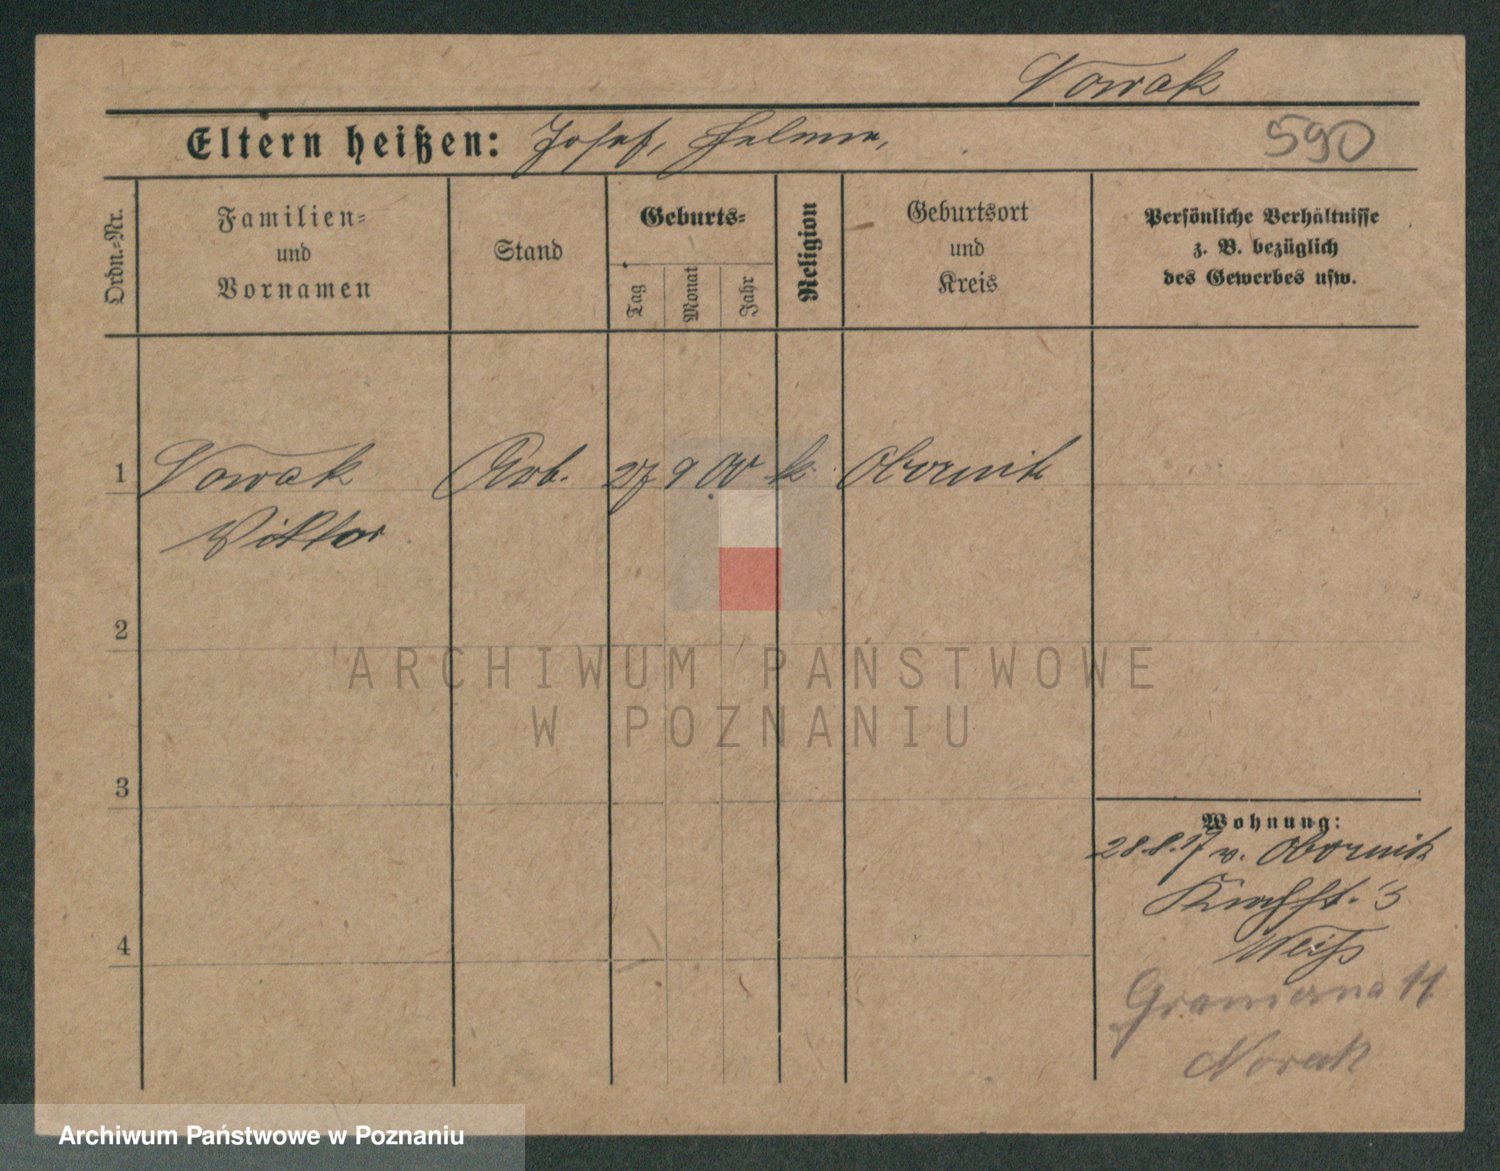 Nowak
Eltern heißen: Josef, Helene,
590
Ordn.-Nr.
Familien-
und
Vornamen
Stand
Geburts-
Tag
Monat
Jahr
Religion
Geburtsort
und
Kreis
Persönliche Verhältnisse
z. B. bezüglich
des Gewerbes usw.
1 Nowak Arb. 27 9 00 k. Obornik
Viktor
2
ARCHIWUM PAŃSTWOWE
W POZNANIU
3
Wohnung:
28.8.17 v. Obornik
3
Weiß
4
11
Nowak
Archiwum Państwowe w Poznaniu